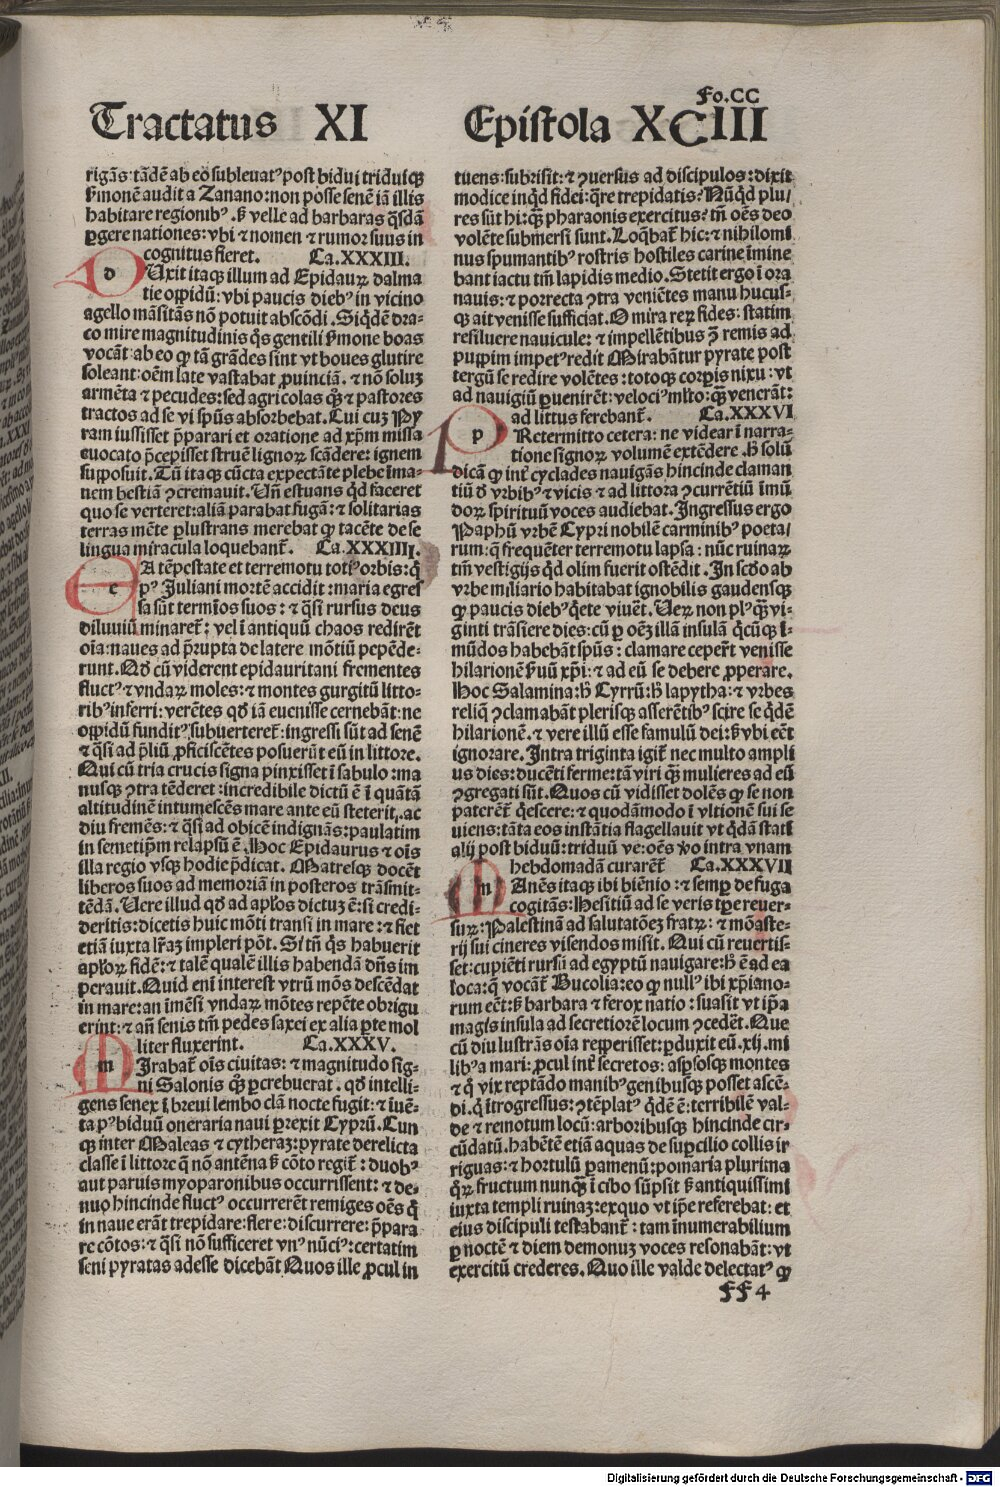 Fo.CC
Tractatus XI Epistola XCIII
rigās: tādē ab eo subleuatꝰ post bidui triduiqꝫ
ẜmonē audit a Zanano: non posse senē iā illis
habitare regionibꝰ. ẜ velle ad barbaras q̄sdā
ꝑgere nationes: vbi ⁊ nomen ⁊ rumor suus in
cognitus fieret. Ca.XXXIII.
dUxit itaqꝫ illum ad Epidauꝝ dalma
tie oppidū: vbi paucis diebꝰ in vicino
agello māsitās nō potuit abscōdi. Siqdē dra-
co mire magnitudinis q̄s gentili ẜmone boas
vocāt: ab eo ꝙ tā grādes sint vt boues glutire
soleant: oēm late vastabat ꝓuinciā. ⁊ nō soluꝫ
armēta ⁊ pecudes: sed agricolas qꝫ ⁊ pastores
tractos ad se vi spūs absorbebat. Cui cuꝫ Py
ram iussisset p̄parari et oratione ad xp̄m missa
euocato p̄cepisset struē lignoꝝ scādere: ignem
supposuit. Tū itaqꝫ cūcta expectāte plebe īma-
nem bestiā ꝯcremauit. Un̄ estuans qd faceret
quo se verteret: aliā parabat fugā: ⁊ solitarias
terras mēte ꝑlustrans merebat ꝙ tacēte de se
lingua miracula loquebant᷑. Ca.XXXIIII.
eA tēpestate et terremotu totiꝰ orbis: q̄
pꝰ Juliani mortē accidit: maria egres
sa sūt termīos suos: ⁊ q̄si rursus deus
diluuiū minaret᷑: vel ī antiquū chaos redirēt
oīa: naues ad p̄rupta de latere mōtiū pepēde-
runt. Qd cū viderent epidauritani frementes
fluctꝰ ⁊ vndaꝝ moles: ⁊ montes gurgitū litto-
ribꝰ inferri: verētes qd iā euenisse cernebāt: ne
oppidū funditꝰ subuerteret᷑: ingressi sūt ad senē
⁊ q̄si ad p̄liū ꝓficiscētes posuerūt eū in littore.
Qui cū tria crucis signa pinxisset ī sabulo: ma
nusqꝫ ꝯtra tēderet: incredibile dictū ē ī quātā
altitudinē intumescēs mare ante eū steterit. ac
diu fremēs: ⁊ q̄si ad obicē indignās: paulatim
in semetip̄m relapsū ē. Hoc Epidaurus ⁊ oīs
illa regio vsqꝫ hodie p̄dicat. Matresqꝫ docēt
liberos suos ad memoriā in posteros trāsmit-
tēdā. Uere illud qd ad ap̄los dictuꝫ ē: si credi-
deritis: dicetis huic mōti transi in mare: ⁊ fiet
etiā iuxta lr̄aꝫ impleri pōt. Si tn̄ q̄s habuerit
ap̄loꝝ fidē: ⁊ talē qualē illis habendā dn̄s im
perauit. Quid enī interest vtrū mōs descēdat
in mare: an īmēsi vndaꝝ mōtes repēte obrigu
erint: ⁊ an̄ senis tm̄ pedes saxei ex alia ꝑte mol
liter fluxerint. Ca.XXXV.
mJrabat᷑ oīs ciuitas: ⁊ magnitudo sig-
ni Salonis qꝫ ꝑcrebuerat. qd intelli-
gens senex ī breui lembo clā nocte fugit: ⁊ īuē-
ta pꝰ biduū oneraria naui ꝑrexit Cyprū. Cun
qꝫ inter Maleas ⁊ cytheraꝫ: pyrate derelicta
classe ī littore q̄ nō antēna ẜ cōto regit᷑: duobꝰ
aut paruis myoparonibus occurrissent: ⁊ de-
nuo hincinde fluctꝰ occurrerēt remiges oēs q̄
in naue erāt trepidare: flere: discurrere: p̄para
re cōtos: ⁊ q̄si nō sufficeret vnꝰ nūciꝰ: certatim
seni pyratas adesse dicebāt Quos ille ꝓcul in
tuens: subrisit: ⁊ ꝯuersus ad discipulos: dixit
modice inqd fidei: q̄re trepidatis? Nūqd plu/
res sūt hi: qꝫ pharaonis exercitus? tn̄ oēs deo
volēte submersi sunt. Loqbat᷑ hic: ⁊ nihilomi
nus spumantibꝰ rostris hostiles carine īmine
bant iactu tm̄ lapidis medio. Stetit ergo ī ora
nauis: ⁊ porrecta ꝯtra veniētes manu hucus-
qꝫ ait venisse sufficiat. O mira reꝝ fides: statim
resiluere nauicule: ⁊ impellētibus ꝯ̄ remis ad
puppim impetꝰ redit Mirabātur pyrate post
tergū se redire volētes: totoqꝫ corꝑis nixu: vt
ad nauigiū ꝑuenirēt: velociꝰ mlto: qꝫ venerāt:
ad littus ferebant᷑. Ca.XXXVI
pRetermitto cetera: ne videar ī narra-
tione signoꝝ volumē extēdere. H̄ solū
dicā ꝙ int᷑ cyclades nauigās hincinde claman
tiū d̄ vrbibꝰ ⁊ vicis ⁊ ad littora ꝯcurrētiū īmū
doꝝ spirituū voces audiebat. Ingressus ergo
Paphū vrbē Cypri nobilē carminibꝰ poeta/
rum: q̄ frequēter terremotu lapsa: nūc ruinaꝝ
tm̄ vestigijs qd olim fuerit ostēdit. In scdo ab
vrbe miliario habitabat ignobilis gaudensqꝫ
ꝙ paucis diebꝰ q̄ete viuēt. Ueꝝ non plꝰ qꝫ vi-
ginti trāsiere dies: cū ꝑ oēꝫ illā insulā q̄cūqꝫ ī-
mūdos habebāt spūs: clamare ceper̄t venisse
hilarionē ẜuū xp̄i: ⁊ ad eū se debere ꝓperare.
Hoc Salamina: h̄ Cyrrū: h̄ lapytha: ⁊ vrbes
reliq̄ ꝯclamabāt plerisqꝫ asserētibꝰ scire se qdē
hilarionē. ⁊ vere illū esse famulū dei: ẜ vbi eēt
ignorare. Intra triginta igit᷑ nec multo ampli
us dies: ducēti ferme: tā viri qꝫ mulieres ad eū
ꝯgregati sūt. Quos cū vidisset dolēs ꝙ se non
paterēt᷑ q̄escere: ⁊ quodāmodo ī vltionē sui se
uiens: tāta eos instātia flagellauit vt qdā stati
alij post biduū: triduū ve: oēs ꝟo intra vnam
hebdomadā curarēt᷑ Ca.XXXVII
mAnēs itaqꝫ ibi biēnio: ⁊ semꝑ de fuga
cogitās: Hesitiū ad se veris tp̄e reuer-
suꝝ: Palestinā ad salutatōeꝫ fratꝝ: ⁊ mōaste-
rij sui cineres visendos misit. Qui cū reuertis-
set: cupiēti rursū ad egyptū nauigare: h̄ ē ad ea
loca: q̄ vocāt᷑ Bucolia: eo ꝙ nullꝰ ibi xp̄iano-
rum eēt: ẜ barbara ⁊ ferox natio: suasit vt ip̄a
magis insula ad secretiorē locum ꝯcedēt. Que
cū diu lustrās oīa reperisset: ꝑduxit eū. xij. mi
libꝰ a mari: ꝓcul int᷑ secretos: asꝑosqꝫ montes
⁊ q̄ vix reptādo manibꝰ genibusqꝫ posset ascē-
di. q̄ ītrogressus: ꝯtēplatꝰ qdē ē: terribilē val-
de ⁊ remotum locū: arboribusqꝫ hincinde cir-
cūdatū. habētē etiā aquas de suꝑcilio collis ir
riguas: ⁊ hortulū ꝑamenū: pomaria plurima
q̄ꝝ fructum nunqꝫ ī cibo sūpsit ẜ antiquissimi
iuxta templi ruinaꝫ: exquo vt ip̄e referebat: et
eius discipuli testabant᷑: tam īnumerabilium
ꝑ noctē ⁊ diem demonuꝫ voces resonabāt: vt
exercitū crederes. Quo ille valde delectatꝰ ꝙ
FF 4
Digitalisierung gefördert durch die Deutsche Forschungsgemeinschaft - DFG